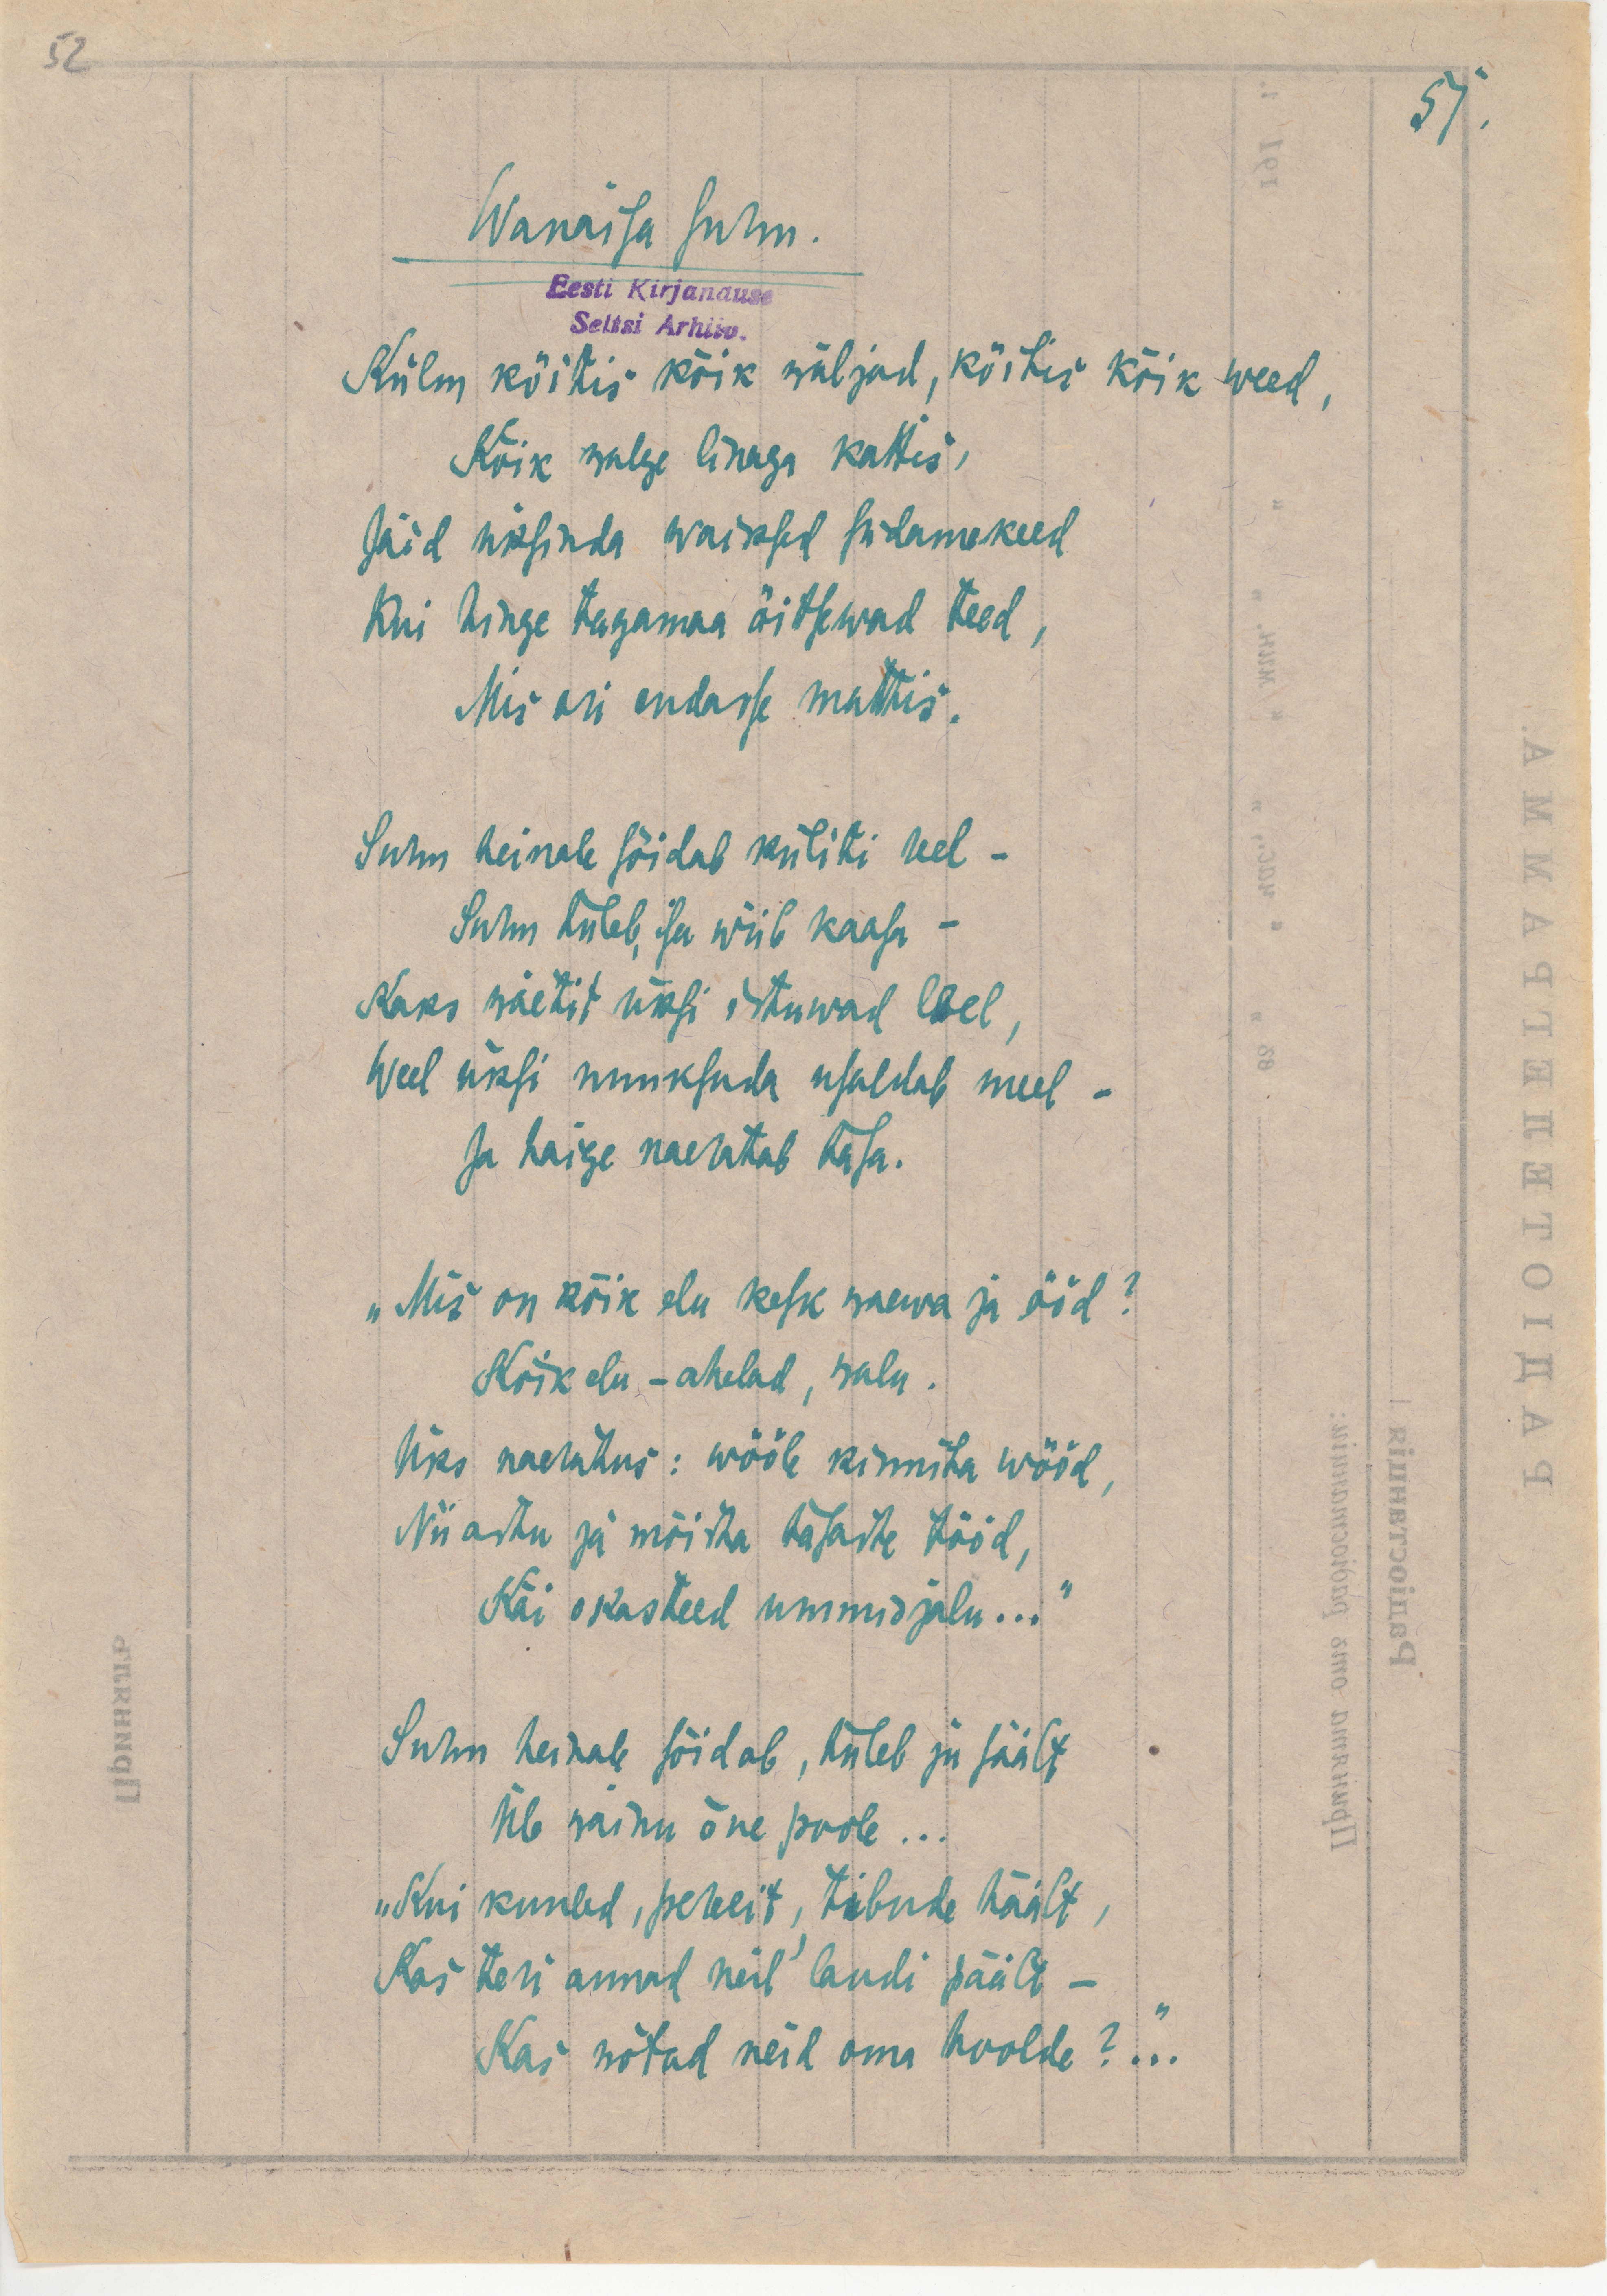 52
57.
Wanaisa surm.
Eesti Kirjanduse
Seltsi Arhiiv.
Külm köitis kõik wäljad, köitis kõik weed,
Kõik walge linaga kattis,
Jäid üksinda waiksed südamekeed
Kui hinge tagamaa õitsewad teed,
Mis ori endasse mattis.
Surm heinale sõidab küliti reel –
Surm tuleb, isa wiib kaasa –
Kaks wäetit üksi istuwad leel,
Weel üksi nuuksuda usaldab meel –
Ja haige naeratab tasa.
„Mis on kõik elu kesk waewa ja ööd?
Kõik elu – ahelad, walu.
Üks naeratus: wööle kinnita wööd,
Nii astu ja mõista tasaste tööd,
Käi okasteed ummisjalu..."
Surm heinale sõidab, tuleb ju säält
Üle wainu õue poole...
„Kui kuuled, pereeit, tibude häält,
Kas teri annad neil' laudi päält –
Kas wõtad neid oma hoolde?"...
РАДІОТЕЛЕГРАММА.
Радіостанція
Принята отъ радіостанціи:
Принялъ
191 г.
" час., " " мин. " "